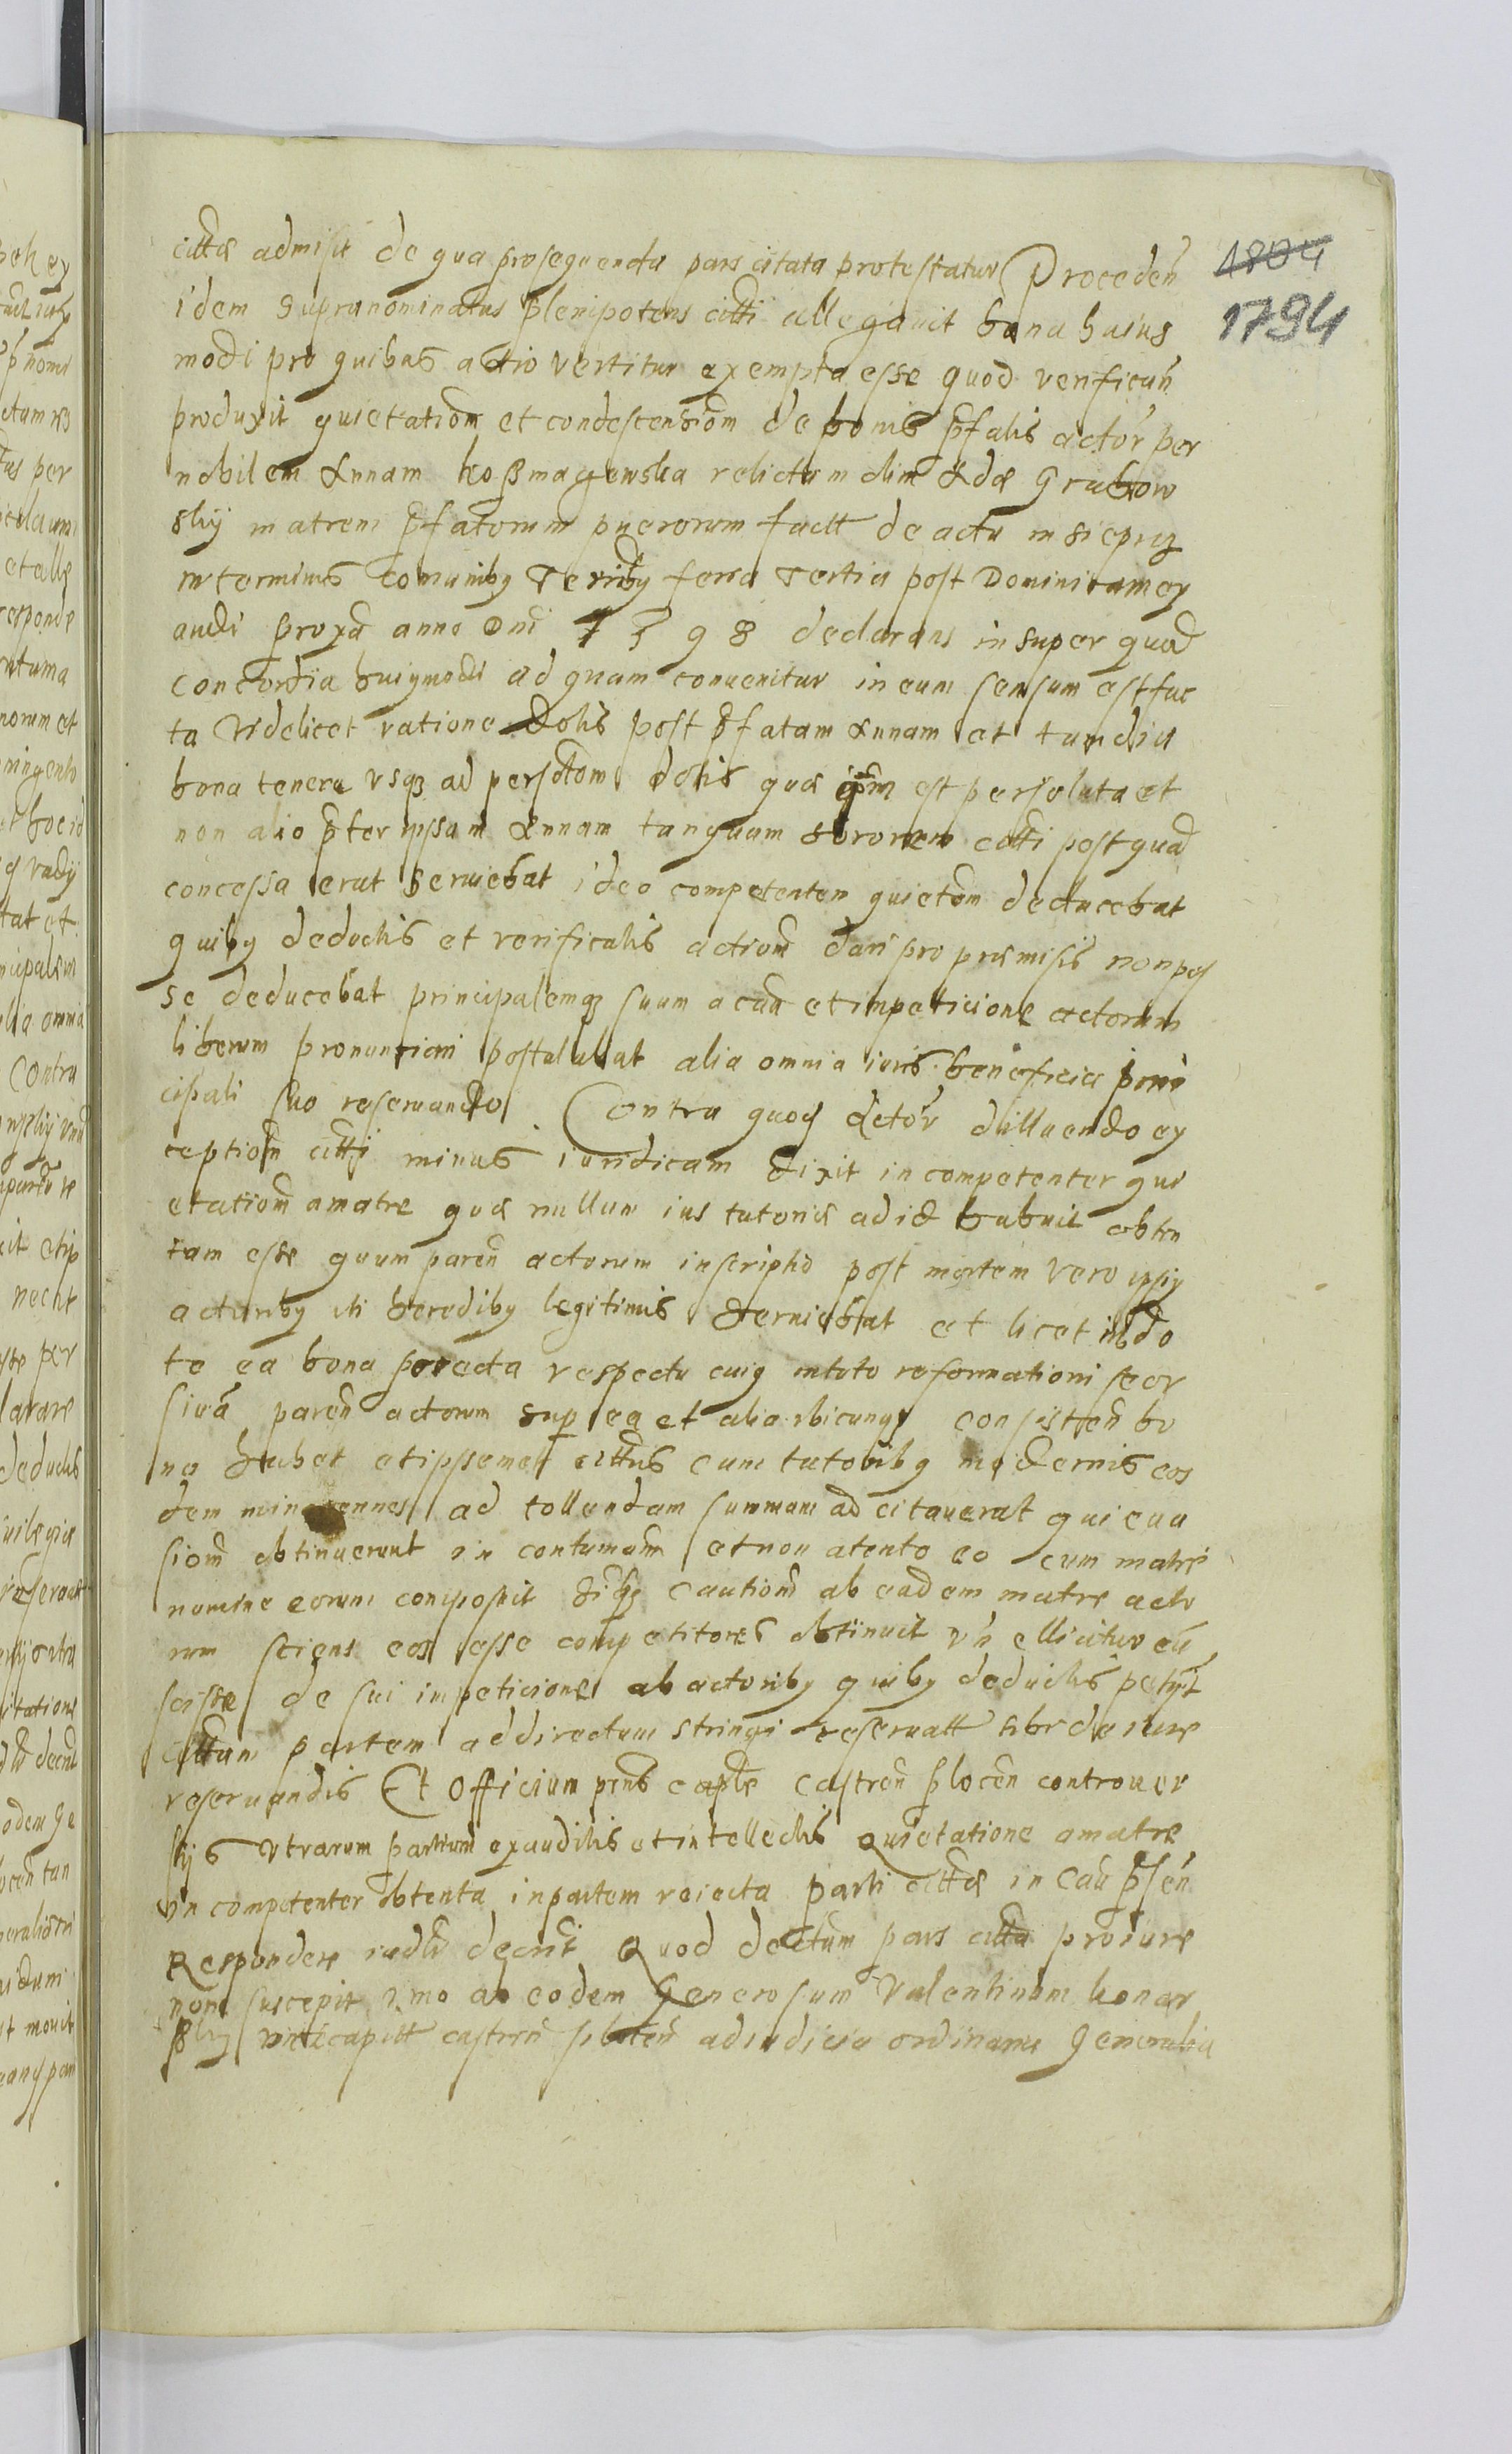 cittã admisit de qua prosequenda pars citata protestatur Proceden̄
1804
1794
idem supranominatus plenipotens citti allegavit bona huius
modi pro quibus actio vertitur exempta esse quod verifican̄
produxit quietationem et condescensionem de bonis pfatis actor̄ per
nobilem Annam relictam olim Adã Grabow
skÿ matrem pfatorum puerorum factt de actu in Sieprcz
in terminis comunibg terribg feria tertia post Dominicam ex
audi proxã anno Dni 1598 declarans insuper quod
concordia huigmodi ad quam convenitur in eum sensum est fac
ta Videlicet ratione dotis post pfatam Annam et tamdiu
bona tenere vsqz ad persotōm dotis quæ est persoluta et
non alio pter ipsam Annam tanquam sororem citti post quã
concessa erat serviebat ideo competentem quietōm deducebat
quibg deductis et verificatis actiom̄ dari pro præmisis non pos
se deducebat principalemqz suum a cau et impeticione actorum
liberum pronuntiari postulabat alia omnia iuris beneficia prin
cipali suo reservando Contra quod Actor̄ dilluendo ex
ceptiom̄ citti minus iuridicam dixit incompetenter qui
etatiom̄ a matre quæ nullum ius tutoriæ ad id habuit obten
tam esse quum paren̄ actorum inscriptio post mortem vero ipsig
actoribg uti heredibg legitimis serviebat et licet in do
te ea bona respectu cuig in toto reformationi seor
sivã paren̄ actorum sup ea et alia ubicunqz consisten̄ bo
na habet et ipsemet cittus cum tutoribg modernis eos
dem minorennes ad tollendam summam ad citaverat qui eva
siom̄ obtinuerunt in contumam̄ et non atento eo cum matre
nomine eorum composuit cautiom̄ ab eadem matre acto
rum sciens eos esse competitores obtinuit vn̄ ellicitur eū
scisse de sui impeticione ab actoribg quibg deductis petÿt
cittam partem ad directum stringi reservatt sibi de iure
reservandis Et Officium pn̄s capłe castren̄ plocen̄ controver
sÿs vtrarum partium exauditis et intellectis Quietatione a matre
in competenter obtenta in partem reiecta parti cittæ in Cau psen̄
Respondere decrit̄ Quod dectum pars citta pro iure
non suscepit imo ab eodem Generosum Valentinum konar
skÿ vicecapitt castren̄ plocen̄ ad iudicia ordinaria Generalia